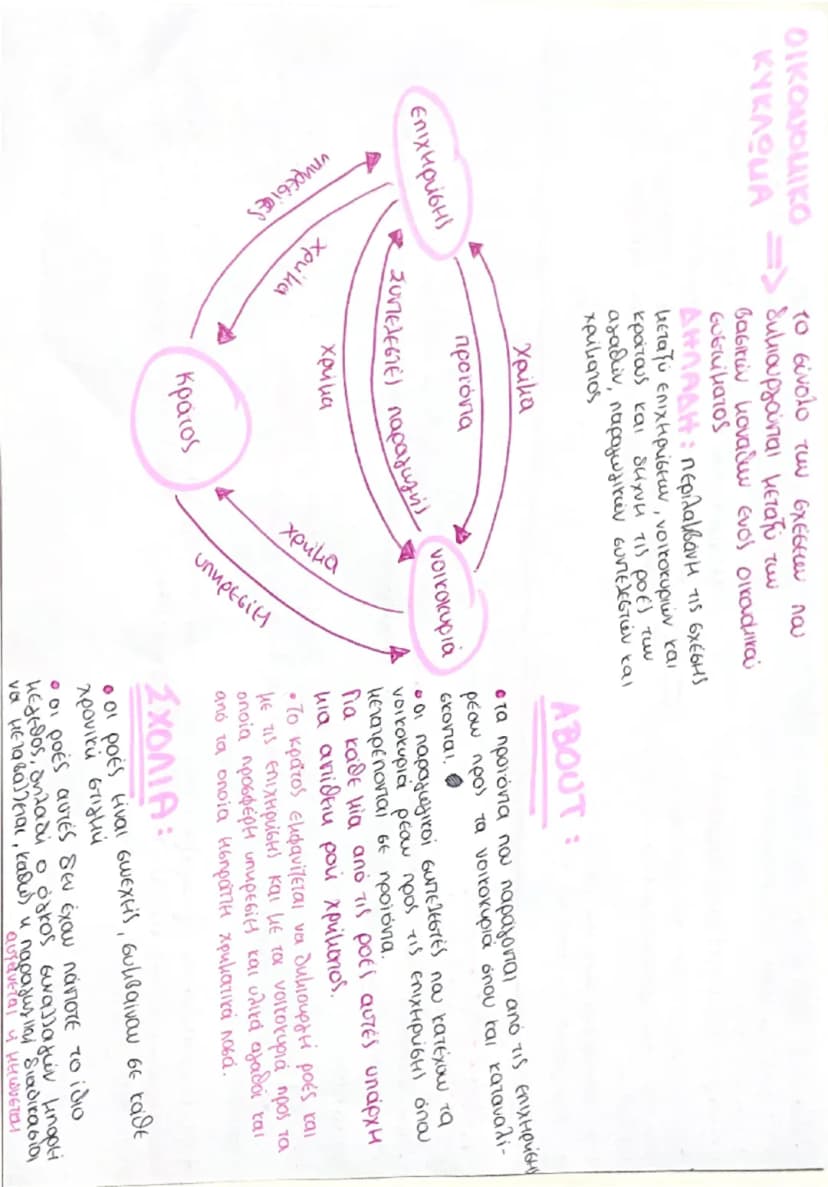 ΟΙΚΟΝΟΜΙΚΟ
ΚΥΚΛΩΜΑ =>
το σύνολο των σχέσεων που
δημιουργούνται μεταξύ των
βασικών μονάδων ενός οικονομικού
συστήματος
ΔΗΛΑΔΗ: περιλαμβάνη τις σχέσης
μεταξύ επιχηρήσεων, νοικοκυριών και
κράτους και δήχνη τις ροές των
αγαθών, παραγωγικών συντελεστών και
χρήματος
χρήμα
προϊόντα
επιχηρήσης
νοικοκυριά
συντελεστές παραγωγής
χρήμα
χρήμα
υπηρεσίες
κράτος
χρήμα
υπηρεσίες
ABOUT:
• τα προϊόντα που παράγονται από τις επιχηρήσης
ρέουν προς τα νοικοκυριά όπου και καταναλί-
σκονται.
• οι παραγωγικοί συντελεστές που κατέχουν τα
νοικοκυριά ρέουν προς τις επιχηρήσης όπου
μετατρέπονται σε προϊόντα.
Για κάθε μία από τις ροές αυτές υπάρχη
μια αντίθετη ροή χρήματος.
• Το κράτος εμφανίζεται να δημιουργή ροές και
με τις επιχηρήσης και με τα νοικοκυριά προς τα
οποία προσφέρη υπηρεσίες και υλικά αγαθά και
από τα οποία ησπράτη χρηματικά ποσά.
ΣΧΟΛΙΑ:
• οι ροές είναι συνεχής, συμβαίνουν σε κάθε
χρονική στιγμή
• οι ροές αυτές δεν έχουν πάντοτε το ίδιο
μέγεθος, δηλαδή ο όγκος συναλλαγών μπορή
να μεταβάλλεται, καθώς η παραγωγική διαδικασία
αυξάνεται ή μηώνεται